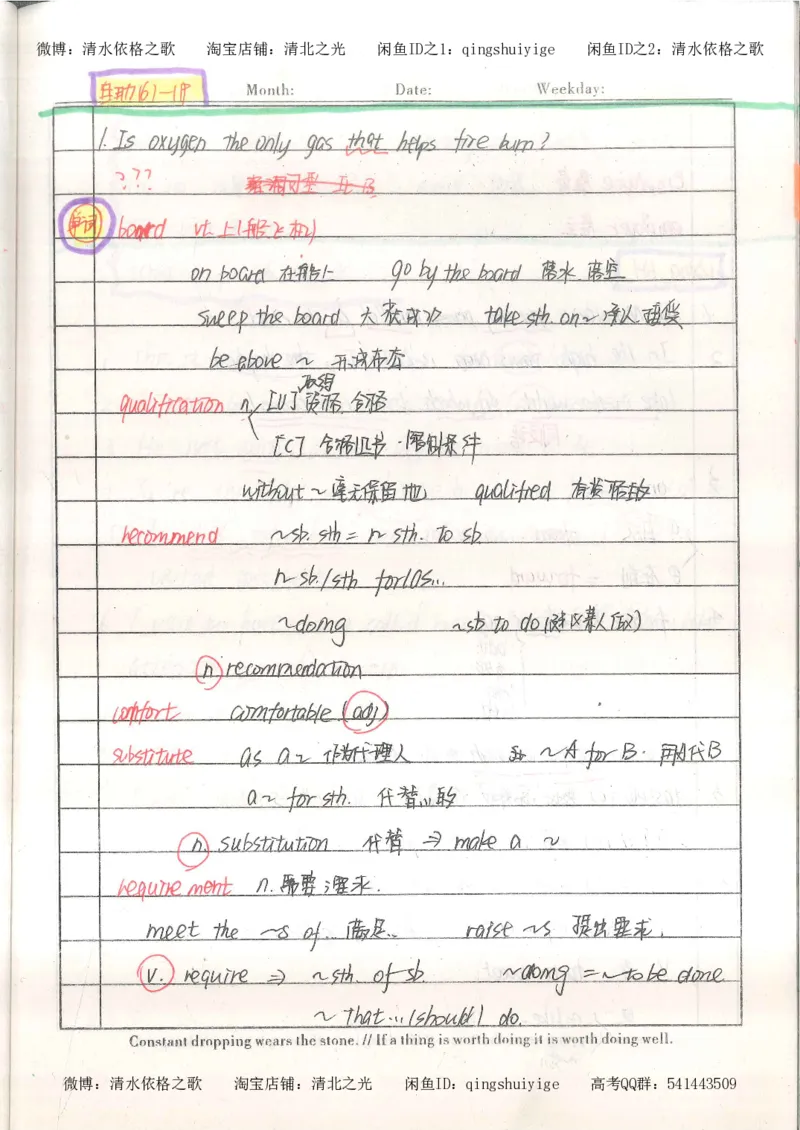 微博：清水依格之歌 淘宝店铺：清北之光 闲鱼ID之1：qingshuiyige 闲鱼ID之2：清水依格之歌
Month: Date: Weekday:
1. Is oxygen the only gas that helps fire burn?
???
单词 board vt. 上(船飞机)
on board 在船上 go by the board 落水 落空
sweep the board 大获成功 take sth. on~ 承认 接受
be above ~ 开诚布公
qualification n. [U] 取得资格. 合格
[C] 合格证书·限制条件
without ~ 毫无保留地 qualified 有资格的
recommend ~sb. sth = ~ sth. to sb.
~ sb./sth for/as...
~doing ~sb to do (建议某人做)
n recommendation
comfort comfortable (adj)
substitute as a~ 作为代理人 ~ A for B. 用A代B
a~ for sth. 代替...的
n. substitution 代替 ⇒ make a ~
requirement n. 需要;要求.
meet the ~s of... 满足... raise ~s 提出要求.
v. require ⇒ ~sth. of sb. ~doing = ~to be done
~ that...(should) do.
Constant dropping wears the stone. // If a thing is worth doing it is worth doing well.
微博：清水依格之歌 淘宝店铺：清北之光 闲鱼ID：qingshuiyige 高考QQ群：541443509